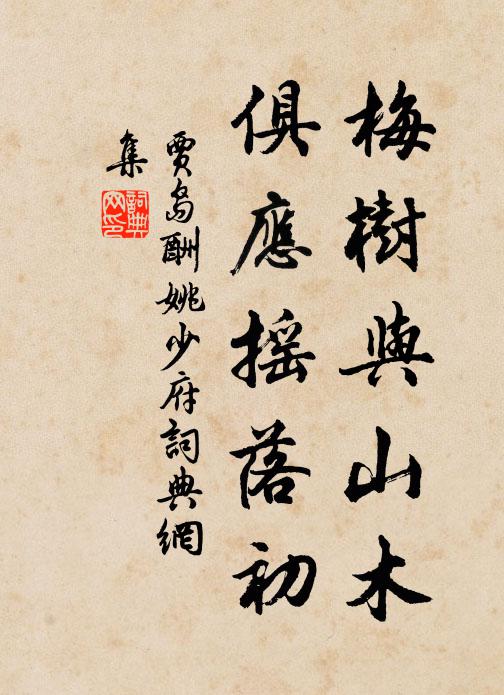 梅樹與山木
俱應搖落初
賈島酬姚少府詞典網
集
詞典网印